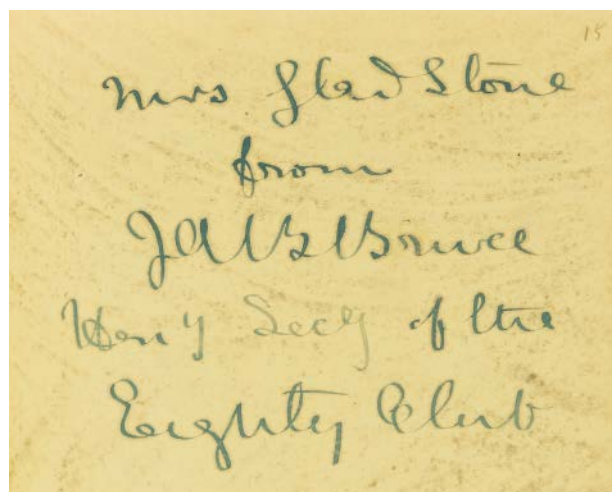 15
Mrs Gladstone
from
J A B Bruce
Hon'y Secy of the
Eighty Club